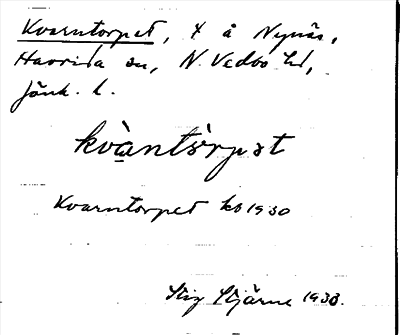 Kvarntorpet, t å Nynäs,
Haurida sn, N. Vedbo hd,
Jönk. l.
kvàntòrpət
Kvarntorpet ks 1930
Stig Stjärne 1933.